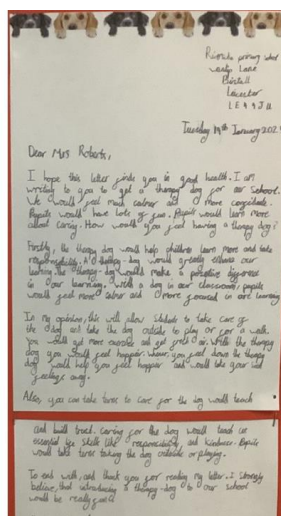 Riverside primary school
Lane
Birstall
Leicester
LE4 4JU
Tuesday 14th January 202
Dear Mrs Roberts,
I hope this letter finds you in good health. I am
writing to you to get a therapy dog for our school.
We would feel much calmer and more
Pupils would have lots of fun. Pupils would learn more
about caring. How would you feel having a therapy dog?
Firstly, the therapy dog would help children learn more and take
responsibility. A therapy-dog would greatly enhance our
learning. The therapy-dog would make a positive
in our learning. With a dog in our classroom, pupils
would feel more calmer and more focused in are learning
In my opinion, this will allow students to take care of
the dog and take the dog outside to play or for a walk.
You will get more exercise and get fresh air. With the therapy
dog you would feel happier. When you feel down the therapy
dog would help you feel happier and would take your sad
feelings away.
Also, you can take turns to care for the dog would teach
and build trust. Caring for the dog would teach us
essential life skills like responsibility and kindness. Pupils
would take turns taking the dog outside or playing.
To end with, and thank you for reading my letter. I strongly
believe, that introducing a therapy-dog to our school
would be really good